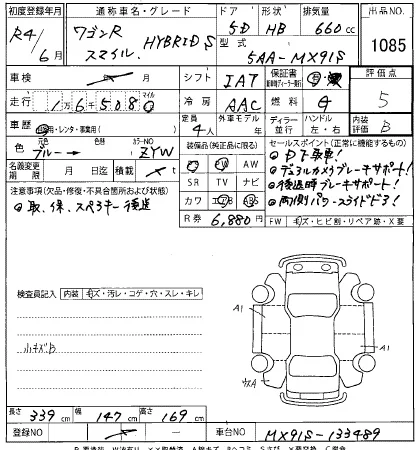 初度登録年月 通称車名・グレード ドア 形状 排気量 出品NO.
R4/6月 ワゴンR スマイル HYBRID S 5D HB 660cc 1085
型式 5AA-MX91S
車検 月 シフト IAT 保証書 評価点 5
走行 16508 冷房 AAC 燃料 G
車歴 自家用・レンタ・事業用( ) 定員 4人 外車モデル ディーラー 並行 ハンドル 左・右 内装評価 B
色 元色 ブルー→ 色替 カラーNO ZYW
装備品(純正品に限る) セールスポイント(正常に機能するもの)
名義変更期限 月 日迄 積載 t
PS PW AW
SR TV ナビ
カワ エアB ABS
R券 6,880円
・D下取車!
・デュアルカメラブレーキサポート!
・後退時ブレーキサポート!
・両側パワースライドドア!
注意事項(欠品・修復・不具合箇所および状態)
取、保、スペアキー後送
FW キズ・ヒビ割・リペア跡・X要
検査員記入 内装 キズ・汚レ・コゲ・穴・スレ・キレ
小キズB
A1
A1
長さ 339cm 幅 147cm 高さ 169cm
登録NO 車台NO MX91S-133489